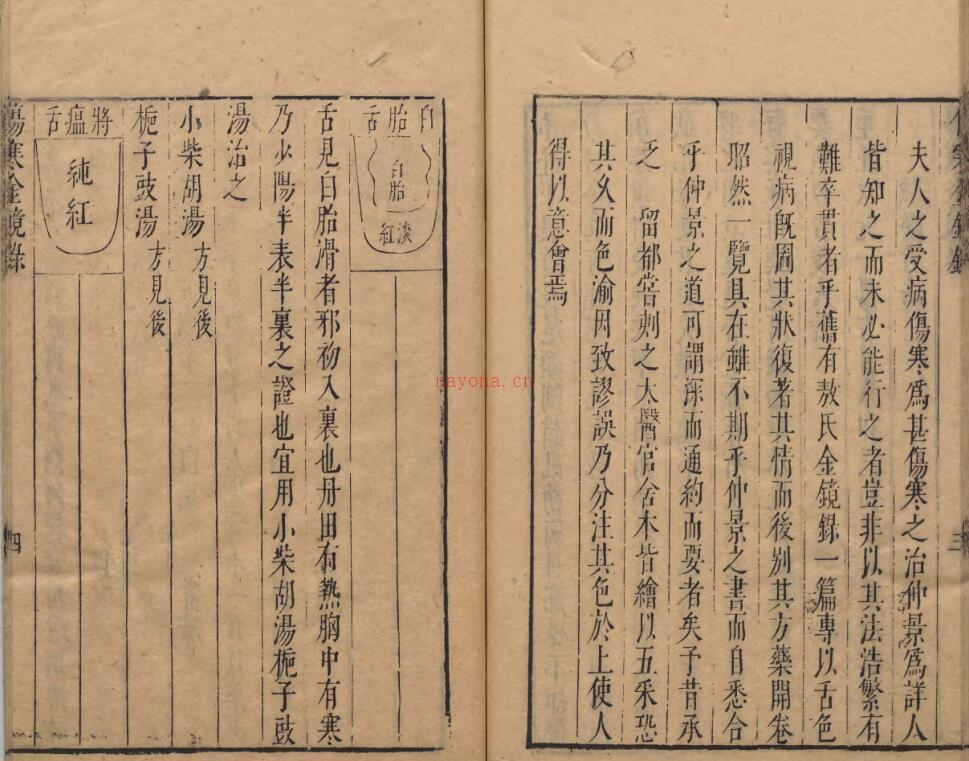 夫人之受病傷寒爲甚傷寒之治仲景爲詳人
皆知之而未必能行之者豈非以其法浩繁有
難卒貫者乎舊有敖氏金鏡錄一篇專以舌色
視病既圖其狀復著其情而後别其方藥開卷
昭然一覽具在雖不期乎仲景之書而自悉合
乎仲景之道可謂深而通約而要者矣予昔承
乏 留都嘗刻之太醫官舍本皆繪以五采恐
其久而色渝因致謬誤乃分注其色於上使人
得以意會焉
三
白胎舌
白胎
淡紅
舌見白胎滑者邪初入裏也丹田有熱胸中有寒
乃少陽半表半裏之證也宜用小柴胡湯梔子豉
湯治之
小柴胡湯方見後
梔子豉湯方見後
將瘟舌
純紅
傷寒金鏡錄
四
nayona.cn